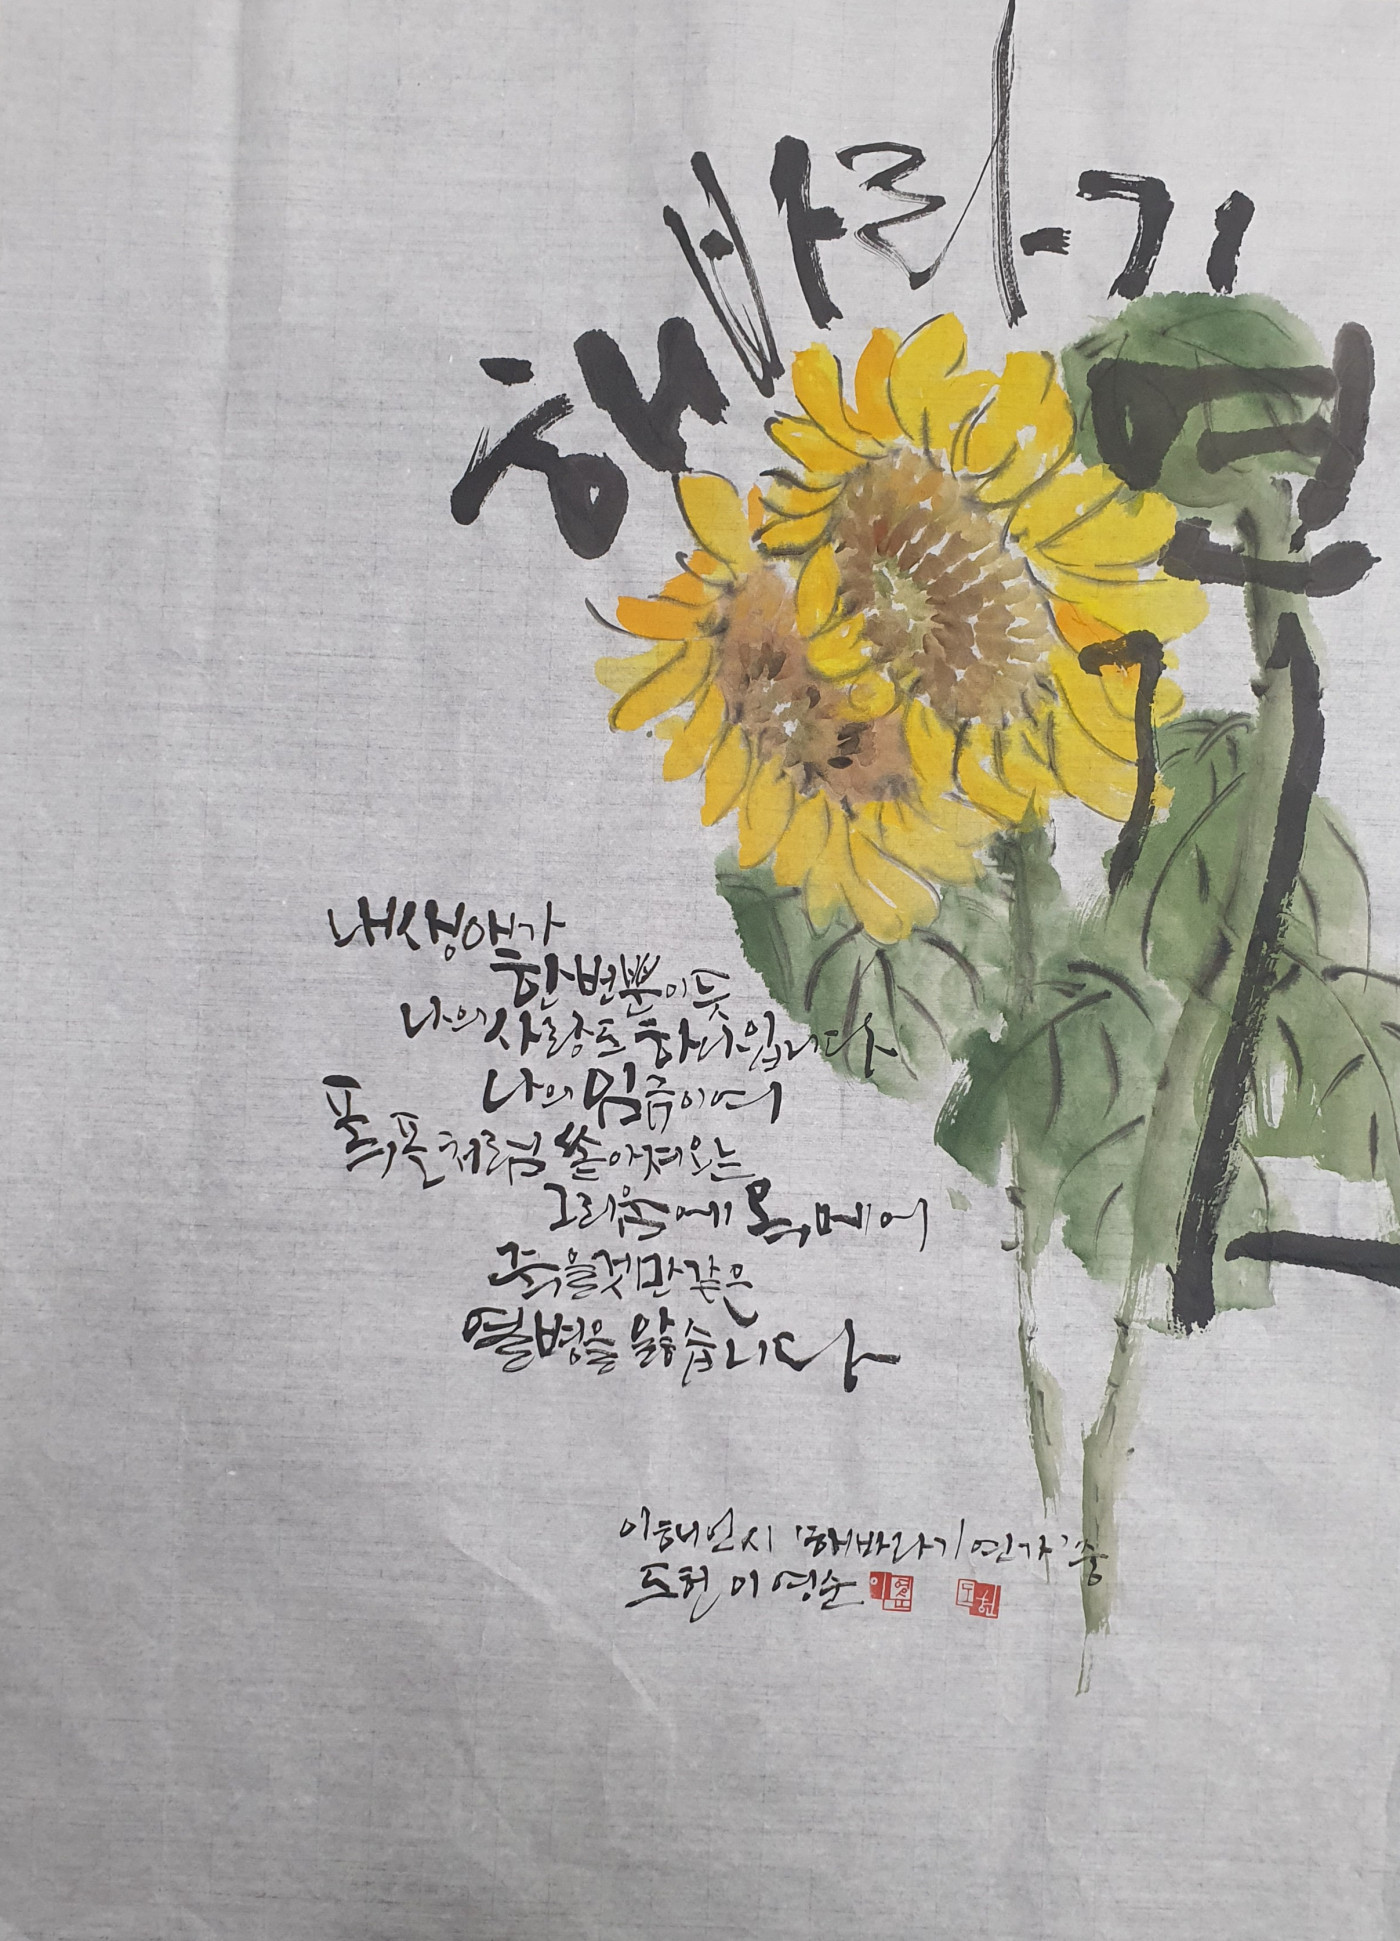 해바라기 연가
내 생애가
한번뿐이듯
나의 사랑도 하나입니다
나의 임금이여
폭포처럼 쏟아져오는
그리움에 목메어
죽을것만 같은
열병을 앓습니다
이해인 시 '해바라기 연가' 중
도헌 이영순
이영순
도헌